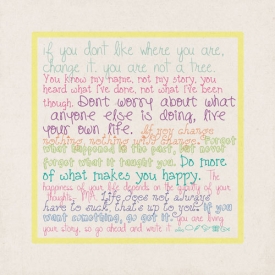 if you dont like where you are,
change it. you are not a tree.
You know my name, not my story, you
heard what i've done, not what i've been
though. Dont worry about what
anyone else is doing, live
your own life. If you change
nothing, nothing will change. Forget
what happened in the past, but never
forget what it taught you. Do more
of what makes you happy. The
happiness of your life depends on the quality of your
thoughts. Life does not always
have to suck, that's up to you. if you
want something, go get it. you are living
your story, so go ahead and write it